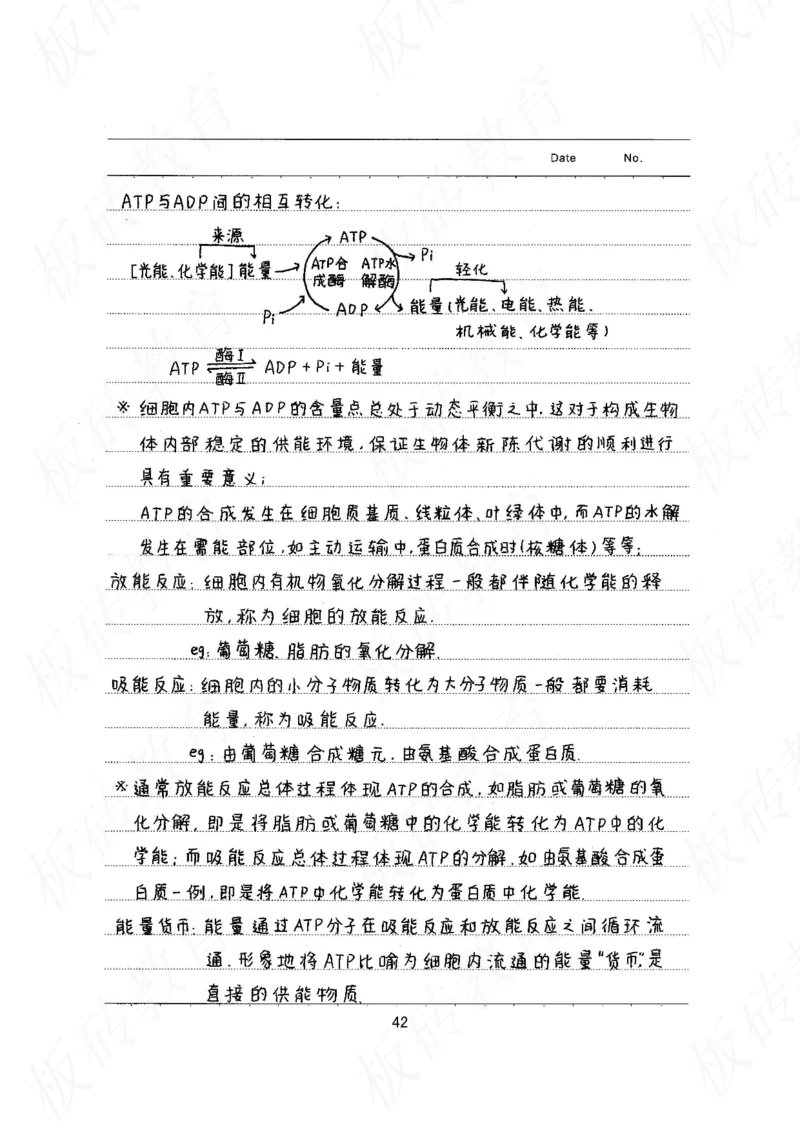 Date No.
ATP与ADP间的相互转化:
来源
[光能、化学能]能量
ATP
Pi
ATP合成酶
ATP水解酶
Pi
ADP
转化
能量(光能、电能、热能、
机械能、化学能等)
ATP 酶Ⅰ 酶Ⅱ ADP+Pi+能量
※ 细胞内ATP与ADP的含量点总处于动态平衡之中,这对于构成生物
体内部稳定的供能环境,保证生物体新陈代谢的顺利进行
具有重要意义;
ATP的合成发生在细胞质基质、线粒体、叶绿体中,而ATP的水解
发生在需能部位,如主动运输中,蛋白质合成时(核糖体)等等;
放能反应:细胞内有机物氧化分解过程一般都伴随化学能的释
放,称为细胞的放能反应.
eg:葡萄糖、脂肪的氧化分解.
吸能反应:细胞内的小分子物质转化为大分子物质一般都要消耗
能量,称为吸能反应.
eg:由葡萄糖合成糖元,由氨基酸合成蛋白质.
※通常放能反应总体过程体现ATP的合成,如脂肪或葡萄糖的氧
化分解,即是将脂肪或葡萄糖中的化学能转化为ATP中的化
学能;而吸能反应总体过程体现ATP的分解,如由氨基酸合成蛋
白质一例,即是将ATP中化学能转化为蛋白质中化学能.
能量货币:能量通过ATP分子在吸能反应和放能反应之间循环流
通.形象地将ATP比喻为细胞内流通的能量“货币”,是
直接的供能物质.
42
板砖教育